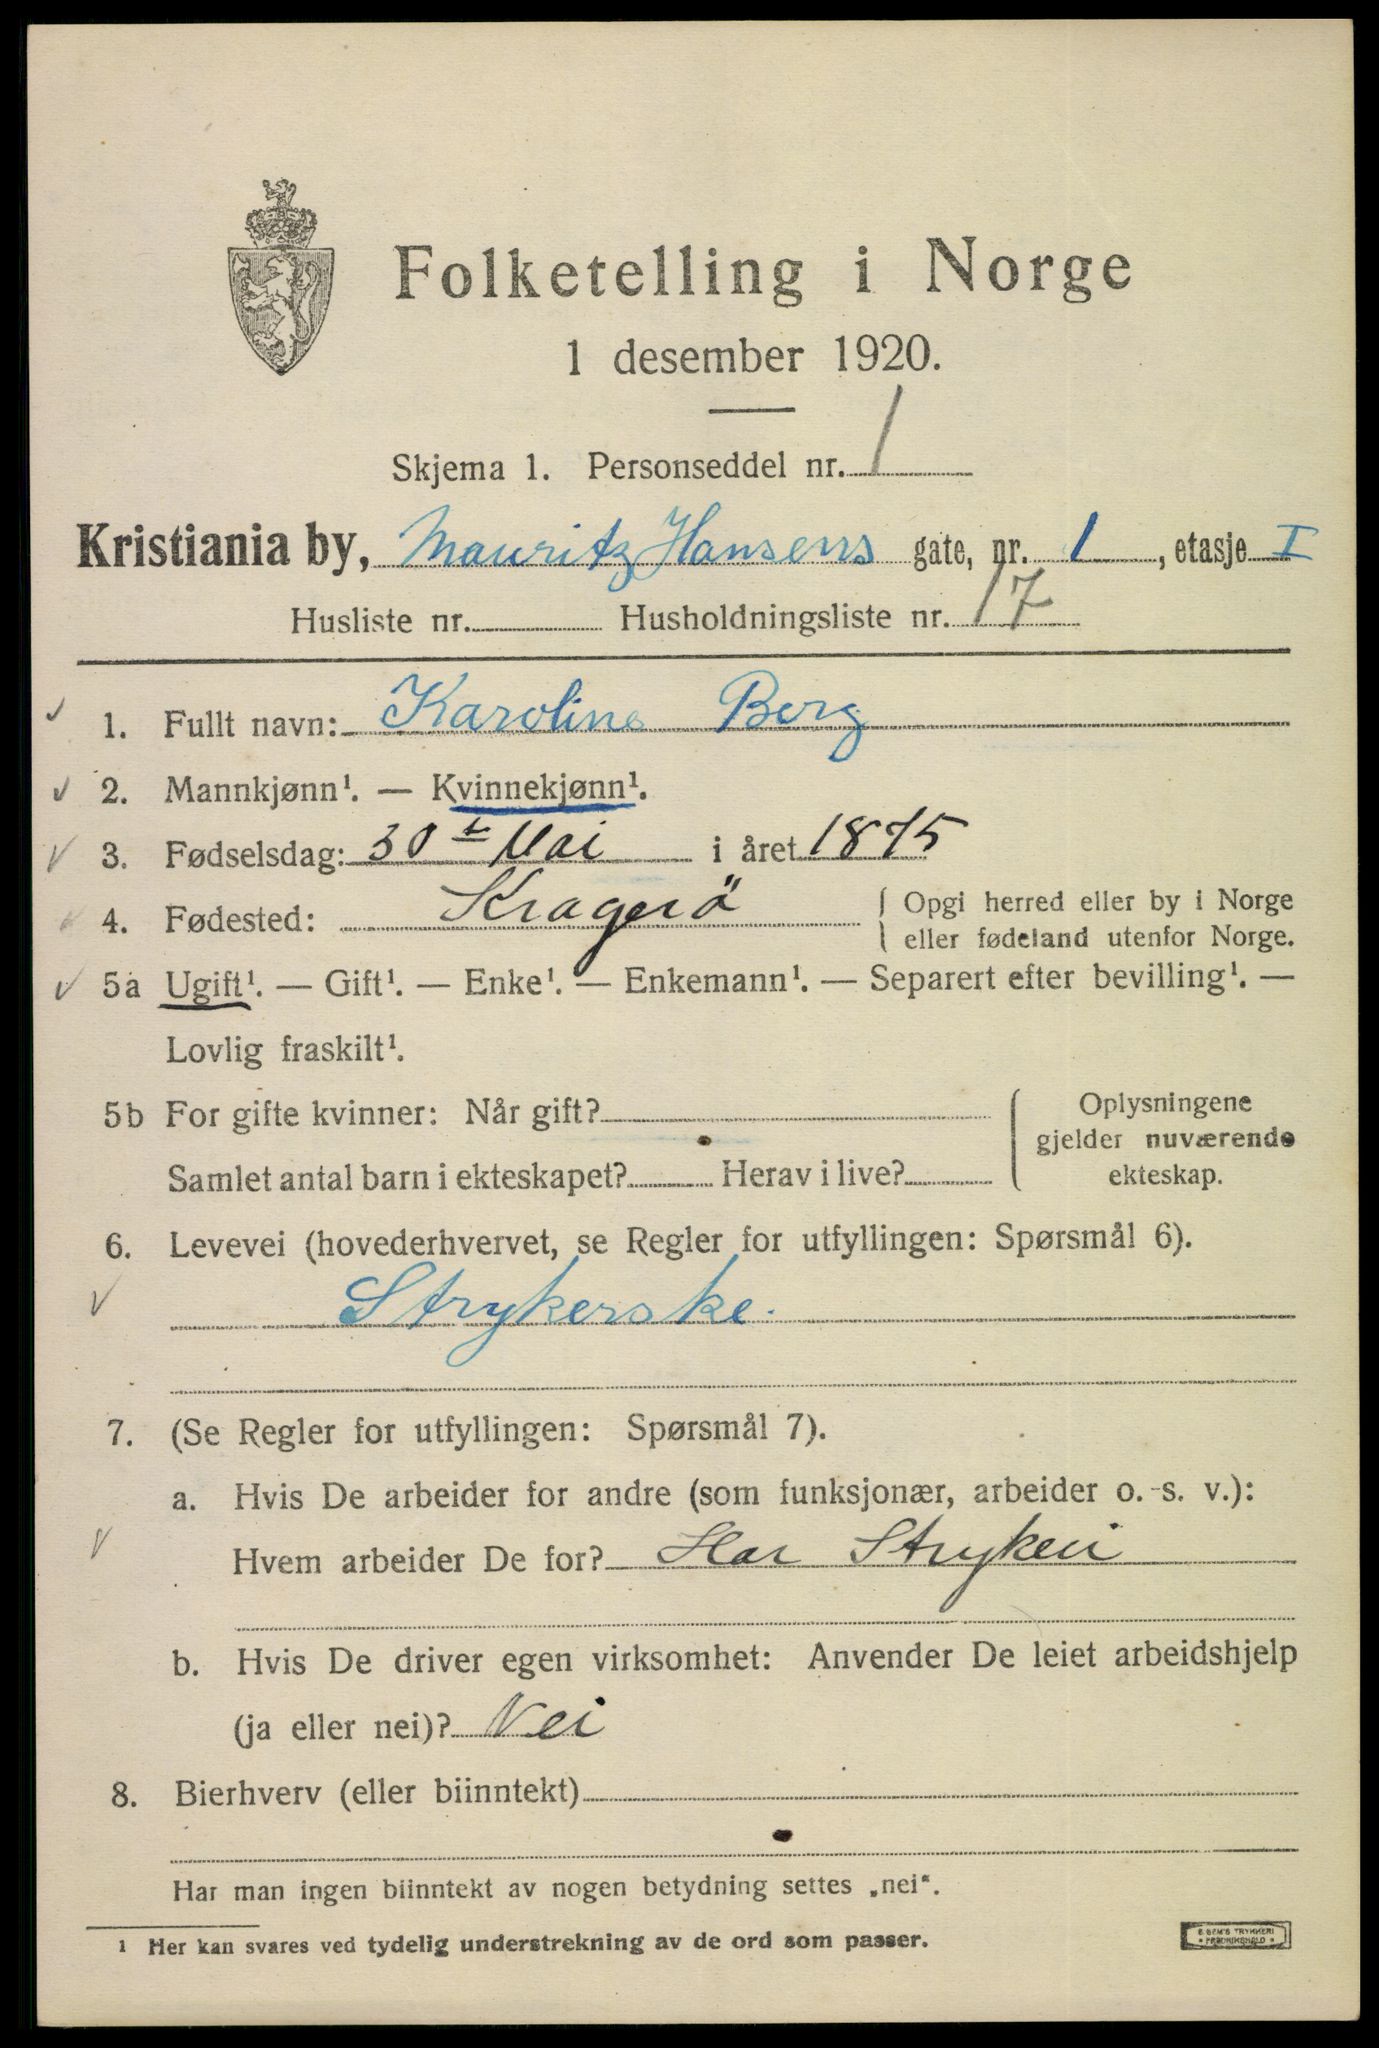 Folketelling i Norge
1 desember 1920.
Skjema 1. Personseddel nr. 1
Kristiania by, Mauritz Hansens gate, nr. 1, etasje I
Husliste nr. Husholdningsliste nr. 17
1. Fullt navn: Karoline Berg
2. Mannkjønn¹. — Kvinnekjønn¹.
3. Fødselsdag: 30t Mai i året 1875
4. Fødested: Kragerö { Opgi herred eller by i Norge
eller fødeland utenfor Norge.
5a Ugift¹. — Gift¹. — Enke¹. — Enkemann¹. — Separert efter bevilling¹. —
Lovlig fraskilt¹.
5b For gifte kvinner: Når gift? { Oplysningene
gjelder nuværende
Samlet antal barn i ekteskapet? Herav i live? ekteskap.
6. Levevei (hovederhvervet, se Regler for utfyllingen: Spørsmål 6).
Strykerske.
7. (Se Regler for utfyllingen: Spørsmål 7).
a. Hvis De arbeider for andre (som funksjonær, arbeider o. s. v.):
Hvem arbeider De for? Har Strykeri
b. Hvis De driver egen virksomhet: Anvender De leiet arbeidshjelp
(ja eller nei)? Nei
8. Bierhverv (eller biinntekt)
Har man ingen biinntekt av nogen betydning settes „nei“.
¹ Her kan svares ved tydelig understrekning av de ord som passer.
E SEM'S TRYKKERI
FREDRIKSHALD